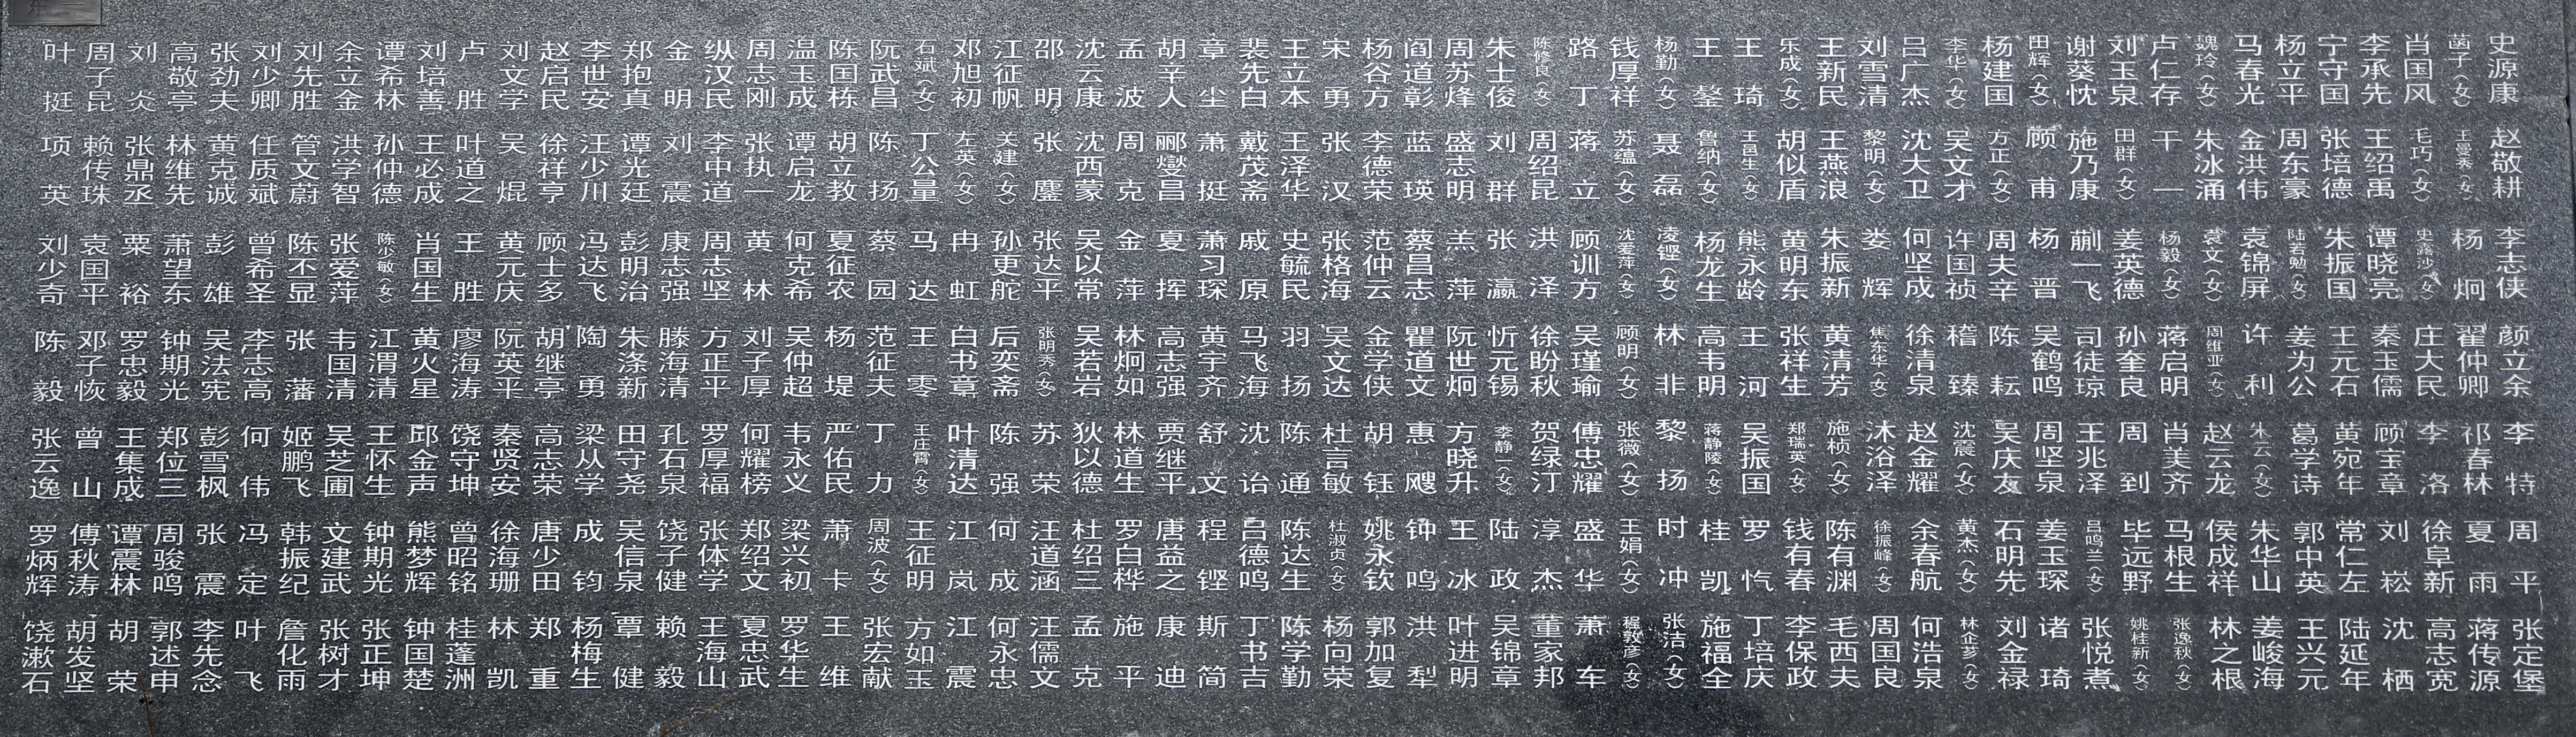 叶挺 周子昆 刘炎 高敬亭 张劲夫 刘少卿 刘先胜 余立金 谭希林 刘培善 卢胜 刘文学 赵启民 李世安 郑抱真 金明 纵汉民 周志刚 温玉成 陈国栋 阮武昌 石斌（女） 邓旭初 江征帆 邵明 沈云康 孟波 胡辛人 章尘 裴先白 王立本 宋勇 杨谷方 阎道彰 周苏烽 朱士俊 陈修良（女） 路丁 钱厚祥 杨勤（女） 王蓥 王琦 乐成（女） 王新民 刘雪清 吕广杰 李华（女） 杨建国 田辉（女） 谢葵忱 刘玉泉 卢仁存 魏玲（女） 马春光 杨立平 宁守国 李承先 肖国风 菡子（女） 史源康
项英 赖传珠 张鼎丞 林维先 黄克诚 任质斌 管文蔚 洪学智 孙仲德 王必成 叶道之 吴焜 徐祥亨 汪少川 谭光廷 刘震 李中道 张执一 谭启龙 胡立教 陈扬 丁公量 左英（女） 关建（女） 张鏖 沈西蒙 周克 郦燮昌 萧挺 戴茂斋 王泽华 张汉 李德荣 蓝瑛 盛志明 刘群 周绍昆 蒋立 苏缊（女） 聂磊 鲁纳（女） 王邑生（女） 胡似盾 王燕浪 黎明（女） 沈大卫 吴文才 方正（女） 顾甫 施乃康 田群（女） 干一 朱冰涌 金洪伟 周东豪 张培德 王绍禹 毛巧（女） 王曼秀（女） 赵敬耕
刘少奇 袁国平 粟裕 萧望东 彭雄 曾希圣 陈丕显 张爱萍 陈少敏（女） 肖国生 王胜 黄元庆 顾士多 冯达飞 彭明治 康志强 周志坚 黄林 何克希 夏征农 蔡园 马达 冉虹 孙更舵 张达平 吴以常 金萍 夏挥 萧习琛 戚原 史毓民 张格海 范仲云 蔡昌志 羔萍 张瀛 洪泽 顾训方 沈爱萍（女） 凌铿（女） 杨龙生 熊永龄 黄明东 朱振新 娄辉 何坚成 许国祯 周夫辛 杨晋 蒯一飞 姜英德 杨毅（女） 袁文（女） 袁锦屏 陆若勉（女） 朱振国 谭晓亮 史露沙（女） 杨炯 李志侠
陈毅 邓子恢 罗忠毅 钟期光 吴法宪 李志高 张藩 韦国清 江渭清 黄火星 廖海涛 阮英平 胡继亭 陶勇 朱涤新 滕海清 方正平 刘子厚 吴仲超 杨堤 范征夫 王零 白书章 后奕斋 张明秀（女） 吴若岩 林炯如 高志强 黄宇齐 马飞海 羽扬 吴文达 金学侠 瞿道文 阮世炯 忻元锡 徐盼秋 吴瑾瑜 顾明（女） 林非 高韦明 王河 张祥生 黄清芳 焦东华（女） 徐清泉 稽臻 陈耘 吴鹤鸣 司徒琼 孙奎良 蒋启明 周维亚（女） 许利 姜为公 王元石 秦玉儒 庄大民 翟仲卿 颜立余
张云逸 曾山 王集成 郑位三 彭雪枫 何伟 姬鹏飞 吴芝圃 王怀生 邱金声 饶守坤 秦贤安 高志荣 梁从学 田守尧 孔石泉 罗厚福 何耀榜 韦永义 严佑民 丁力 王庄霄（女） 叶清达 陈强 苏荣 狄以德 林道生 贾继平 舒文 沈诒 陈通 杜言敏 胡钰 惠飕 方晓升 李静一（女） 贺绿汀 傅忠耀 张薇（女） 黎扬 蒋静陵（女） 吴振国 郑瑞英（女） 施桢（女） 沐浴泽 赵金耀 沈震（女） 吴庆友 周坚泉 王兆泽 周到 肖美齐 赵云龙 朱云（女） 葛学诗 黄宛年 顾宝章 李洛 祁春林 李特
罗炳辉 傅秋涛 谭震林 周骏鸣 张震 冯定 韩振纪 文建武 钟期光 熊梦辉 曾昭铭 徐海珊 唐少田 成钧 吴信泉 饶子健 张体学 郑绍文 梁兴初 萧卡 周波（女） 王征明 江岚 何成 汪道涵 杜绍三 罗白桦 唐益之 程铿 吕德鸣 陈达生 杜淑贞（女） 姚永钦 钟鸣 王冰 陆政 淳杰 盛华 王娟（女） 时冲 桂凯 罗忾 钱有春 陈有渊 徐振峰（女） 余春航 黄杰（女） 石明先 姜玉琛 吕鸣兰（女） 毕远野 马根生 侯成祥 朱华山 郭中英 常仁左 刘崧 徐阜新 夏雨 周平
饶漱石 胡发坚 胡荣 郭述申 李先念 叶飞 詹化雨 张树才 张正坤 钟国楚 桂蓬洲 林凯 郑重 杨梅生 覃健 赖毅 王海山 夏忠武 罗华生 王维 张宏献 方如玉 江震 何永忠 汪儒文 孟克 施平 康迪 斯简 丁书吉 陈学勤 杨向荣 郭加复 洪犁 叶进明 吴锦章 董家邦 萧车 穆敦彦（女） 张洁（女） 施福全 丁培庆 李保政 毛西夫 周国良 何浩泉 林企芗（女） 刘金禄 诸琦 张悦煮 姚桂新（女） 张逸秋（女） 林之根 姜峻海 王兴元 陆延年 沈栖 高志宽 蒋传源 张定堡